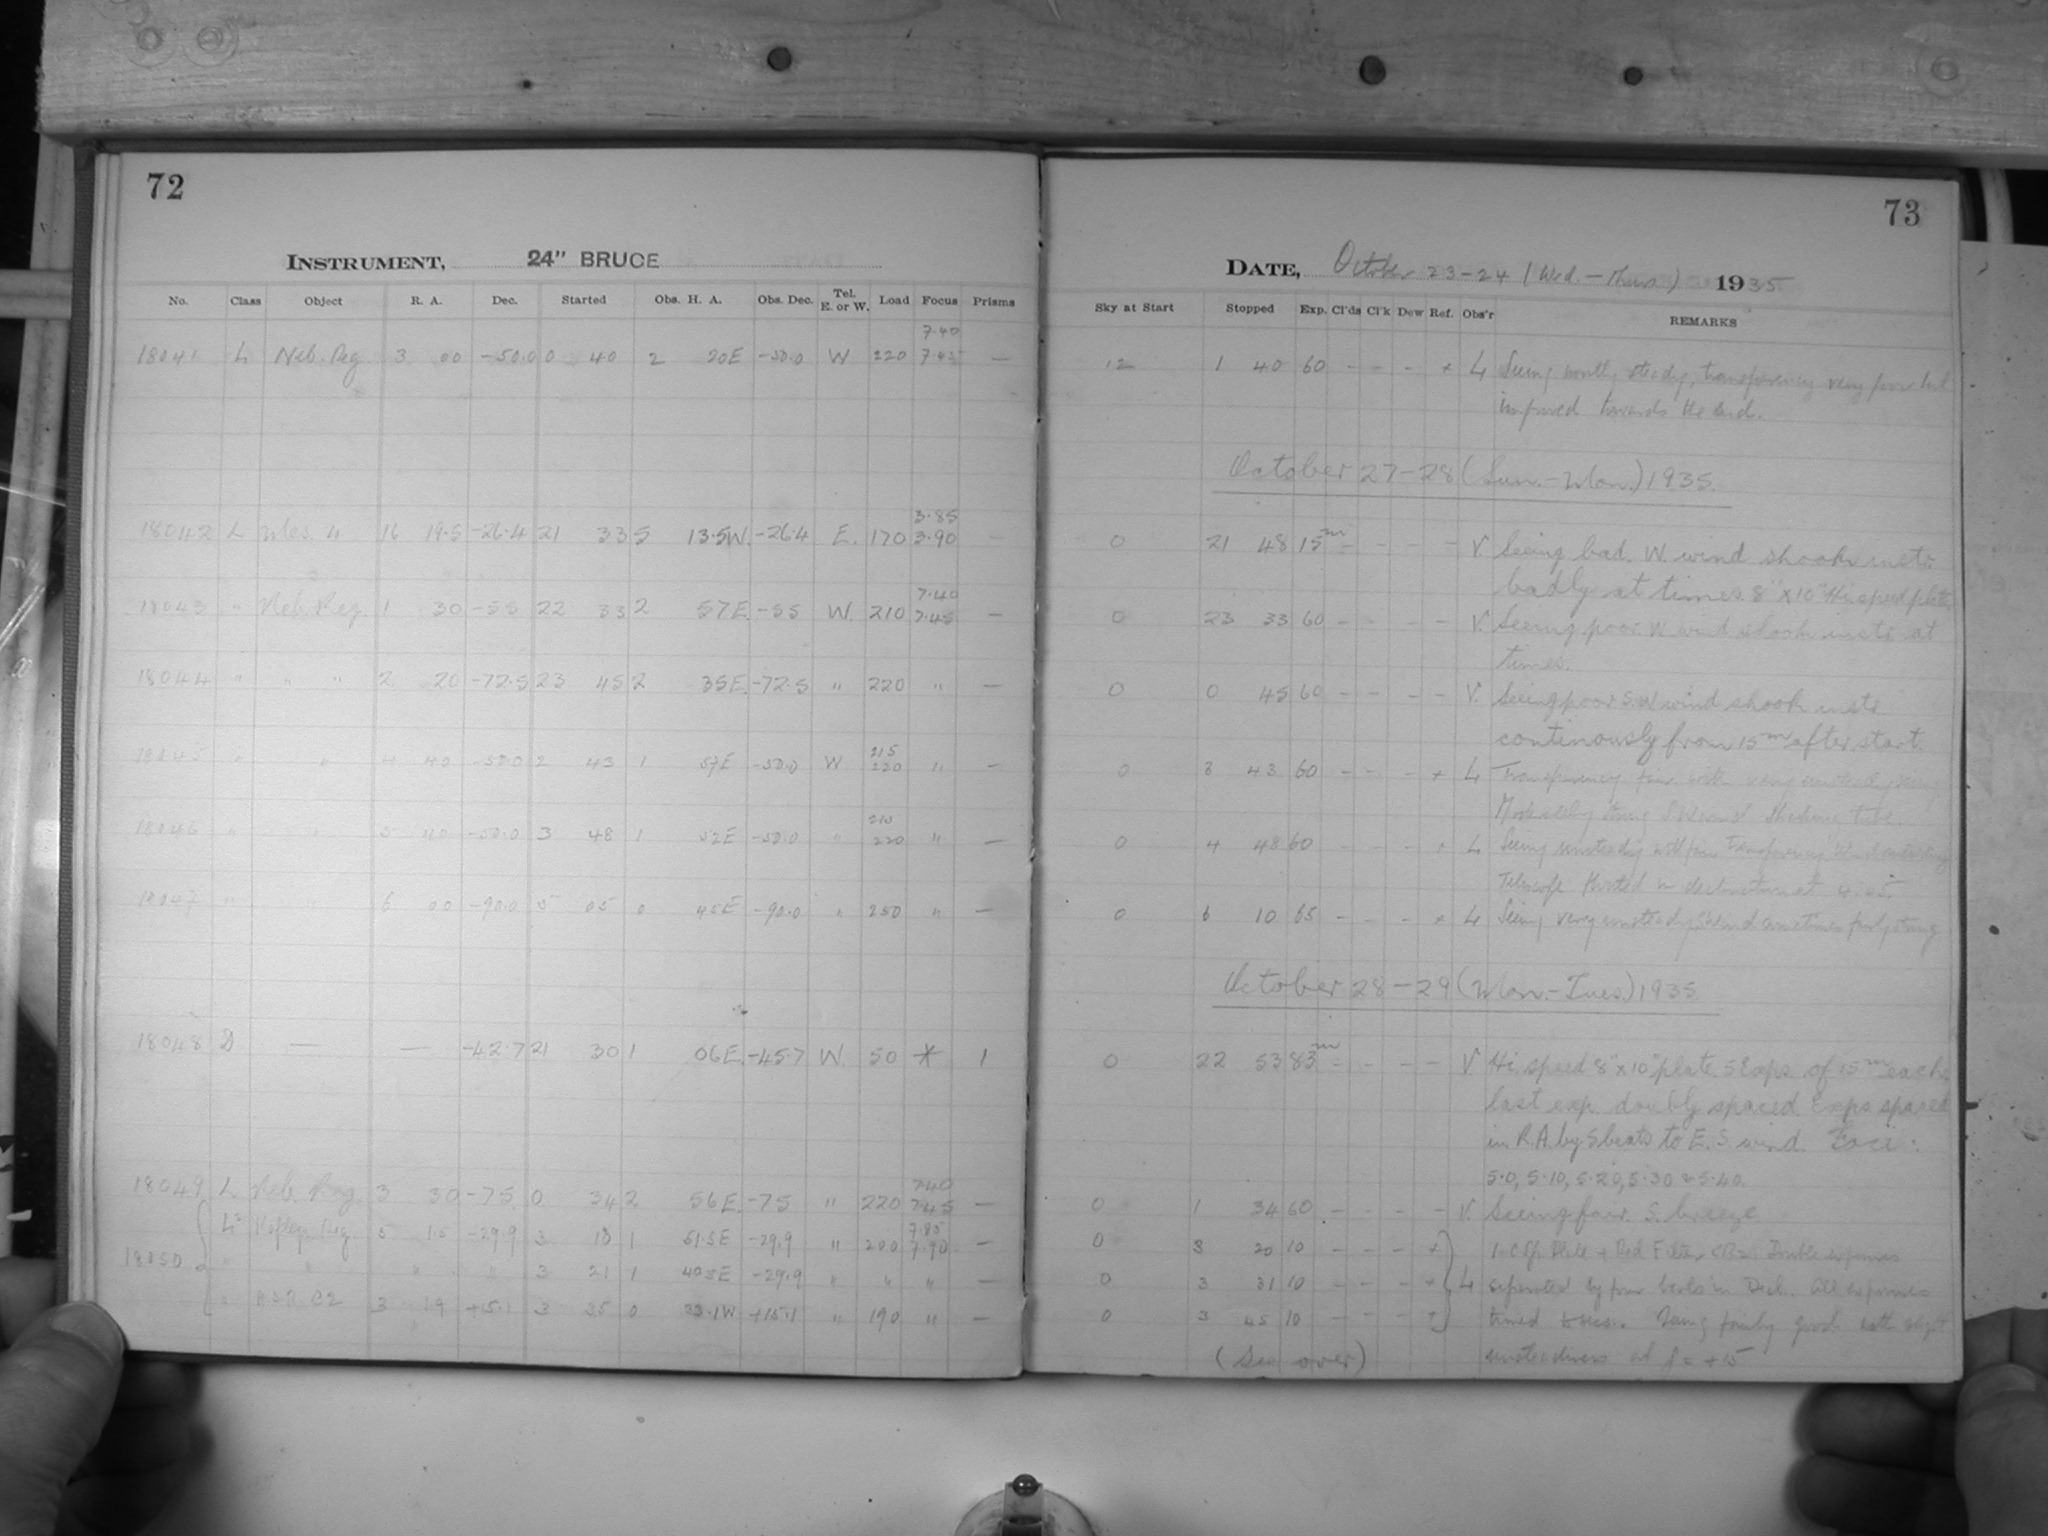 72
INSTRUMENT, 24" BRUCE
No. Class Object R. A. Dec. Started Obs. H. A. Obs. Dec. Tel. E. or W. Load Focus Prisms
7.40
18041 L Neb. Reg. 3 00 -50.0 0 40 2 20E -50.0 W 220 7.45 —
3.85
18042 L 16 19.5 -26.4 21 33 5 13.5W. -26.4 E. 170 3.90 —
7.40
18043 " Neb. Reg. 1 30 -55 22 33 2 57E. -55 W. 210 7.45 —
18044 " " " 2 20 -72.5 23 45 2 35E. -72.5 " 220 " —
215
18045 " " 4 40 -50.0 2 43 1 57E -50.0 W 220 " —
215
18046 " " 5 40 -50.0 3 48 1 52E -50.0 " 220 " —
18047 " " 6 00 -90.0 5 05 0 45E -90.0 " 250 " —
18048 D — — -42.7 21 30 1 06E. -45.7 W. 50 * 1
7.40
18049 L Neb. Reg. 3 30 -75 0 34 2 56E. -75 " 220 7.45 —
7.85
5 1.5 -29.9 3 10 1 51.5E -29.9 " 200 7.90 —
18050 " " " " 3 21 1 40.5E -29.9 " " " —
" C2 3 19 +15.1 3 35 0 33.1W +15.1 " 190 " —
73
DATE, October 23-24 (Wed.-Thurs) 1935
Sky at Start Stopped Exp. Cl'ds Cl'k Dew Ref. Obs'r REMARKS
12 1 40 60 - - - + L Seeing mostly steady, transparency very poor but
improved towards the end.
October 27-28 (Sun.-Mon.) 1935.
0 21 48 15m - - - - V. Seeing bad. W. wind shook instr.
badly at times. 8"x10" Hi. speed plate.
0 23 33 60 - - - - V. Seeing poor. W. wind shook instr. at
times.
0 0 45 60 - - - - V. Seeing poor. S.W. wind shook instr.
continously from 15m after start.
0 3 43 60 - - - + L Transparency fair with very unsteady seeing
Moderately strong S wind tube.
0 4 48 60 - - - + L Seeing unsteady with fair transparency.
Telescope in declination at 4.
0 6 10 65 - - - + L Seeing very unsteady, S wind sometimes fairly strong
October 28-29 (Mon.-Tues.) 1935.
0 22 53 83m - - - - V Hi. speed 8"x10" plate. 5 Exps. of 15m each,
last exp. doubly spaced. Exps. spaced
in R.A. by 5 beats to E. S. wind. Foci:
5.0, 5.10, 5.20, 5.30 & 5.40.
0 1 34 60 - - - - V. Seeing fair. S. breeze.
0 3 20 10 - - - + Plate + Red Filter Double exposures
0 3 31 10 - - - + L separated by four beats in Dec. All exposures
0 3 45 10 - - - + timed Seeing fairly good with slight
(See over) unsteadiness at